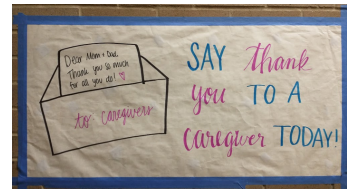 Dear Mom + Dad,
Thank you so much
for all you do!
to: caregivers
SAY thank
you TO A
caregiver TODAY!